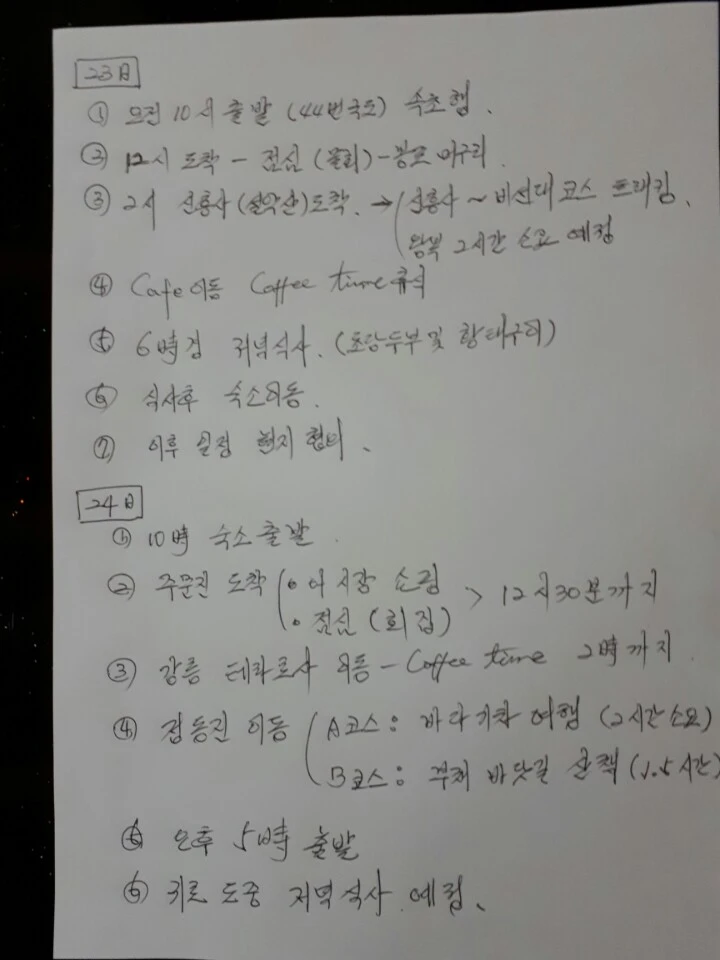 23日
① 오전 10시 출발 (44번국도) 속초행.
② 12시 도착 - 점심 (물회) - 봉포 머구리
③ 2시 신흥사 (설악산) 도착. → 신흥사 ~ 비선대 코스 트래킹.
왕복 2시간 소요 예정
④ Cafe 이동 Coffee time 휴식
⑤ 6時경 저녁식사. (초당두부 및 황태구이)
⑥ 식사후 숙소이동.
⑦ 이후 일정 현지 협의.
24日
① 10時 숙소 출발
② 주문진 도착 • 어시장 쇼핑 > 12시30분까지
• 점심 (회집)
③ 강릉 테라로사 이동 - Coffee time 2時까지
④ 정동진 이동 A코스: 바다기차 여행 (2시간소요)
B코스: 부채 바닷길 산책 (1.5시간)
⑤ 오후 5時 출발
⑥ 귀로 도중 저녁식사 예정.